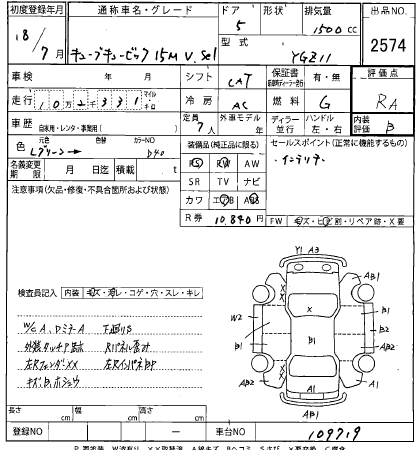 初度登録年月 通称車名・グレード ドア 形状 排気量 出品NO.
18/7月 キューブキュービック 15M V.Sel 5 1500cc 2574
型式 YGZ11
車検 年 月 シフト CAT 保証書 有・無 評価点
走行 10万2千331 マイル・キロ 冷房 AC 燃料 G RA
車歴 自家用・レンタ・事業用( ) 定員 7人 外車モデル 年 ディーラー 並行 ハンドル 左・右 内装評価 B
色 元色 色替 カラーNO D40
装備品(純正品に限る) セールスポイント(正常に機能するもの)
PS PW AW インテリア
名義変更期限 月 日迄 積載 t SR TV ナビ
注意事項(欠品・修復・不具合箇所および状態) カワ エアB ABS
R券 10,840円 FW キズ・ヒビ割・リペア跡・X要
検査員記入 内装 キズ・汚レ・コゲ・穴・スレ・キレ
W/C A、Dミラー A 下廻りS
外装タッチP跡 Rパネル歪み
左Rフェンダー XX 左Rインパネ BP
Y1 A3
AB1 AB1
W2 X B1
B1 B1 B2
B1
AB2 X AB2
A1 A1 A1
AB1
長さ cm 幅 cm 高さ cm
登録NO 車台NO 109719